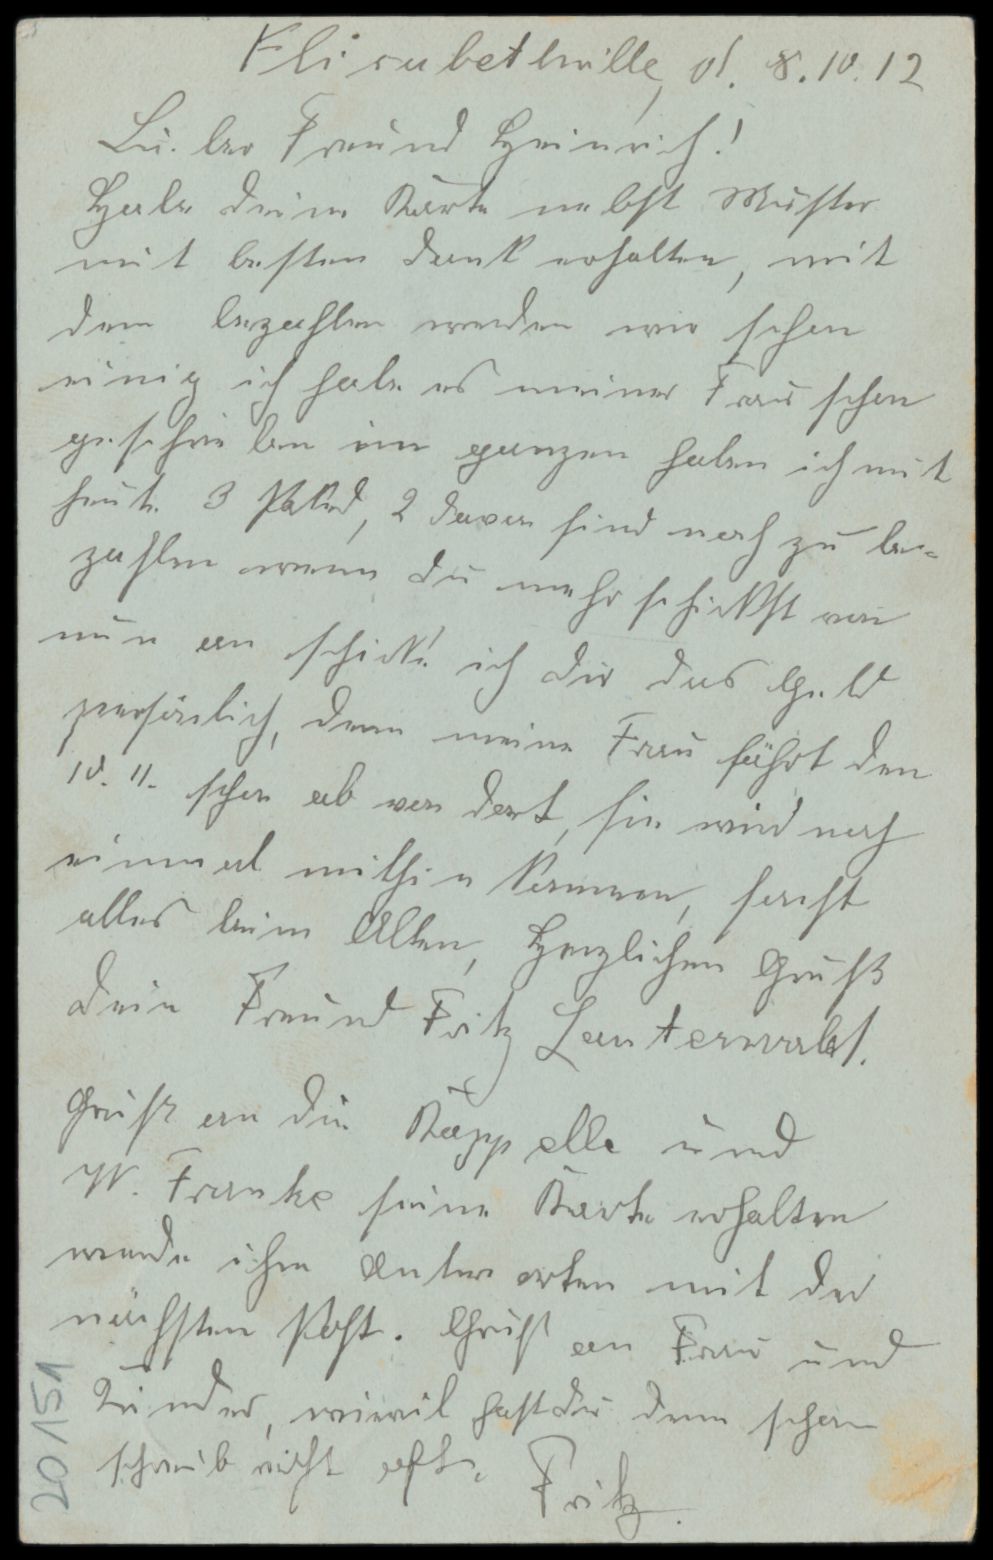 Elisabethville, d. 8.10.12
Lieber Freund Heinrich!
Habe deine Karte nebst Muster
mit besten Dank erhalten, mit
dem bezahlen werden wir schon
einig ich habe es meiner Frau schon
geschrieben im ganzen haben ich mit
heute 3 Paked, 2 davon sind noch zu be=
zahlen wenn du mehr schickst von
nun an schicke ich dir das Geld
persönlich, denn meine Frau fährt den
10. 11. schon ab von dort, sie wird noch
einmal mithin kommen, sonst
alles beim Alten, Herzlichen Gruß
dein Freund Fritz
Gruß an die Kappelle und
W. Franke seine Karte erhalten
werde ihm Antworten mit der
nächsten Post. Gruß an Frau und
Kinder, wieviel hast du denn schon
schreib recht oft. Fritz.
20/151